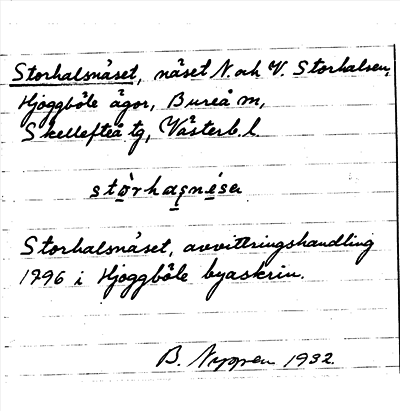 Storhalsnäset, näset N. och V. Storhalsen,
Hjoggböle ägor, Bureå sn,
Skellefteå tg, Västerb. l.
Storhalsnäset, avvittringshandling
1796 i Hjoggböle byaskrin.
B. Nygren 1932.